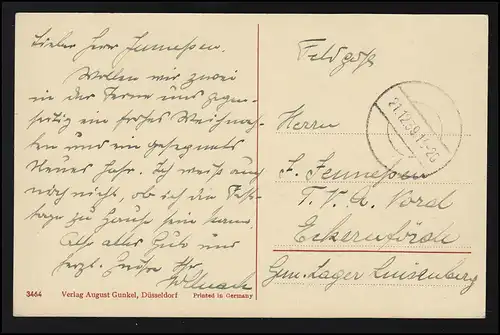 Lieber Herr Jennessen.
Wollen wir zwei
in der Ferne uns gegen-
seitig ein frohes Weihnach-
ten und ein gesegnetes
Neues Jahr. Ich weiß auch
noch nicht, ob ich die Fest-
tage zu Hause sein kann
Also alles Gute und
herzl. Grüße Ihr
Feldpost
21.12.39.1
Herrn
F. Jennessen
T. V. A. Nord
Eckernförde
Gem. Lager Luisenberg
3464 Verlag August Gunkel, Düsseldorf Printed in Germany